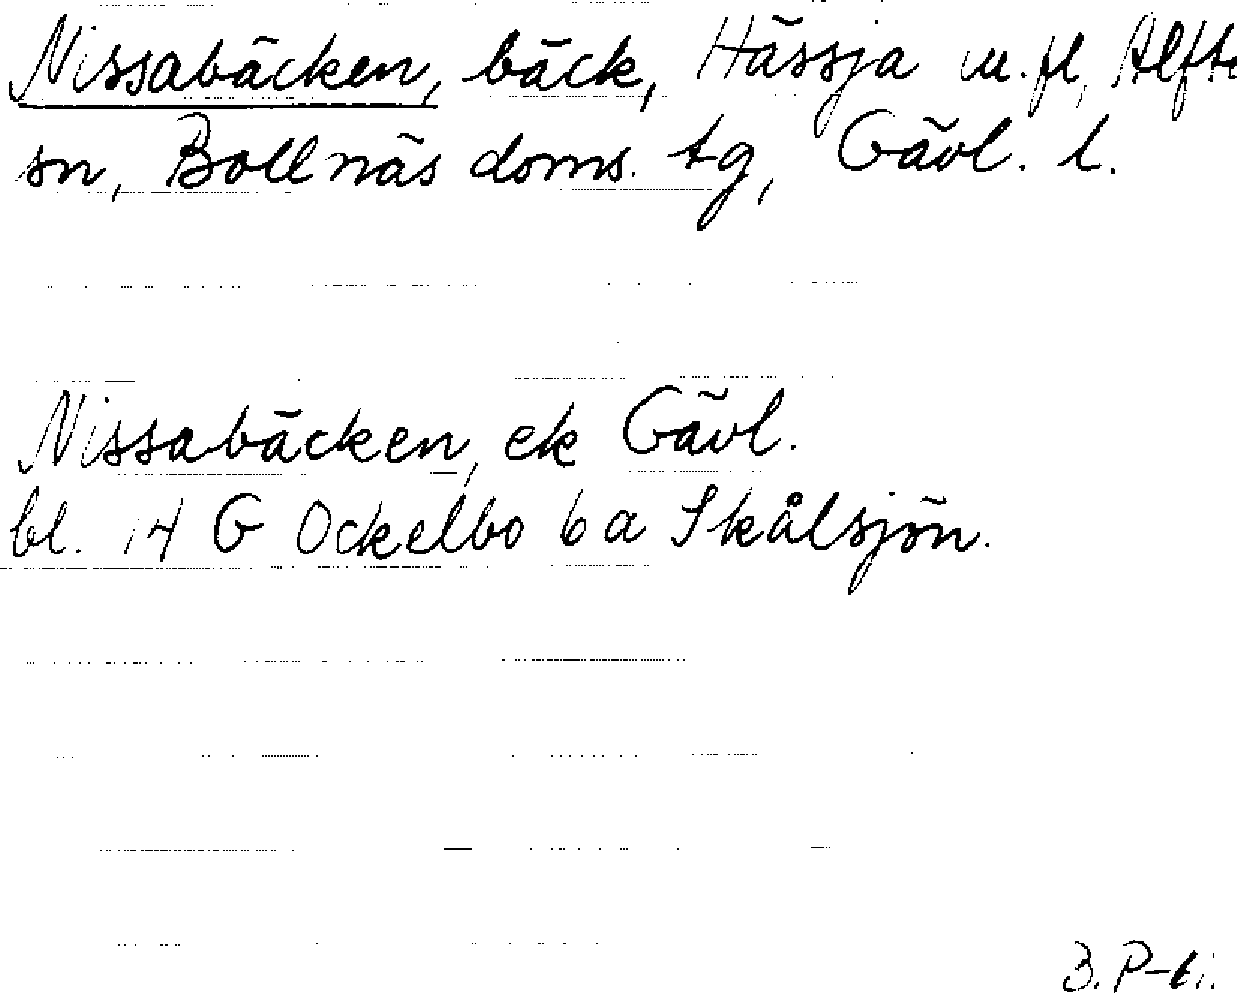 Nissabäcken, bäck, Hässja m.fl, Alfta
sn, Bollnäs doms. tg, Gävl. l.
Nissabäcken, ek Gävl.
bl. 14 G Ockelbo 6 a Skålsjön.
B. P-ti.